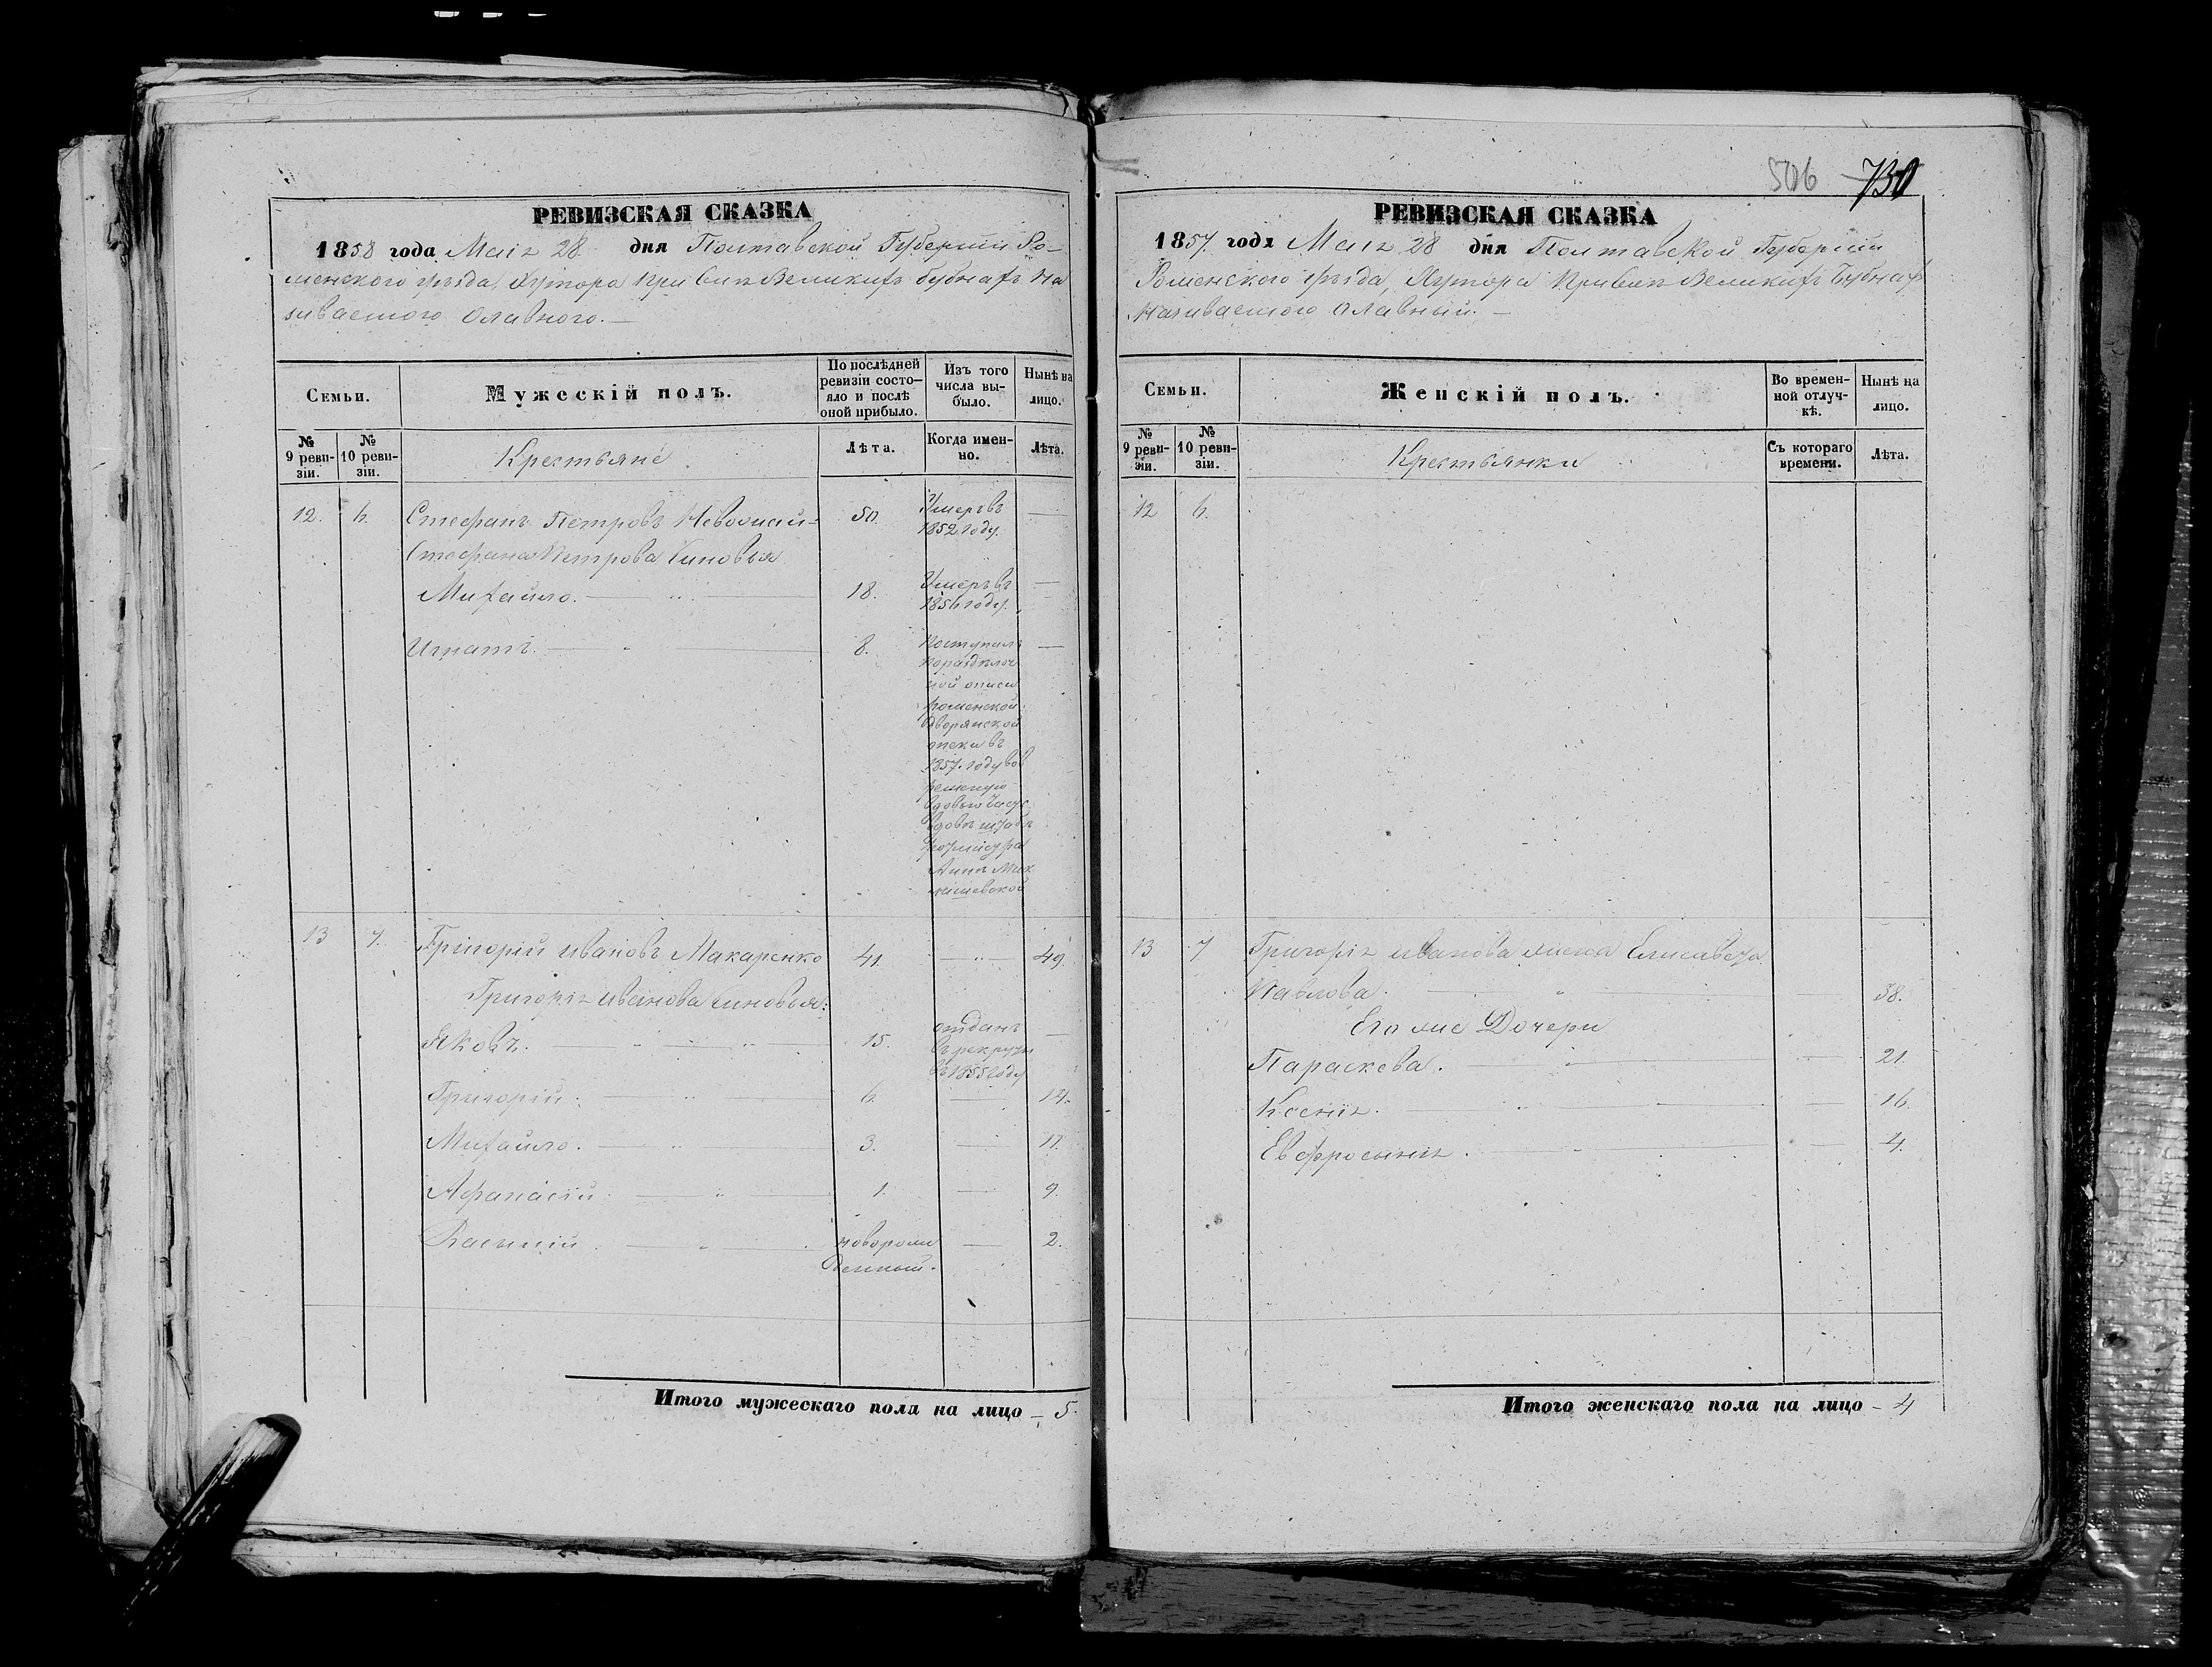 РЕВИЗСКАЯ СКАЗКА
1858 года Маія 28 дня Полтавской Губерніи Ро-
менского уѣзда, Хутора при Селѣ Великихъ Бубнахъ На
зиваемого Славного. —
Семьи.
Мужескій полъ.
По послѣдней ревизіи состо- яло и послѣ оной прибыло.
Изъ того числа вы- было.
Нынѣ на лицо.
№ 9 реви- зіи.
№ 10 реви- зіи.
Крестьяне
Лѣта.
Когда имен- но.
Лѣта.
12. 6. Стефанъ Петровъ 50. Умеръ въ —
1852 году.
Стефана Петрова Синовья
Михайло. — " — 18. Умеръ въ —
году.
Игнатъ. — " — 8. Поступилъ —
по раздѣлоч
ной описи
Роменской
дворянской
опеки въ
1857. году во
вдовѣ штабъ
Аннѣ
13 7. Григорій Ивановъ Макаренко 41. — " — 49.
Григорія Иванова Синовья:
Яковъ. — " — " — 15. отданъ —
въ рекруты
въ 1855 году
Григорій. — " — 6. — 14.
Михайло. — " — 3. — 11.
Афанасій. — " — 1. — 9.
новорож — 2.
денный.
Итого мужескаго пола на лицо — 5.
506 730
РЕВИЗСКАЯ СКАЗКА
1857. года Маія 28 дня Полтавской Губерніи
Роменского уѣзда, Хутора при Селѣ Великихъ Бубнахъ
Називаемого Славный. —
Семьи.
Женскій полъ.
Во времен- ной отлуч- кѣ.
Нынѣ на лицо.
№ 9 реви- зіи.
№ 10 реви- зіи.
Крестьянки
Съ котораго времени.
Лѣта.
12 6.
13 7 Григорія Иванова жена Елисавета
Павлова. — " — 38.
Его же Дочери
Параскева. — " — 21.
Ксенія. — " — 16.
Евфросинія. — " — 4.
Итого женскаго пола на лицо — 4